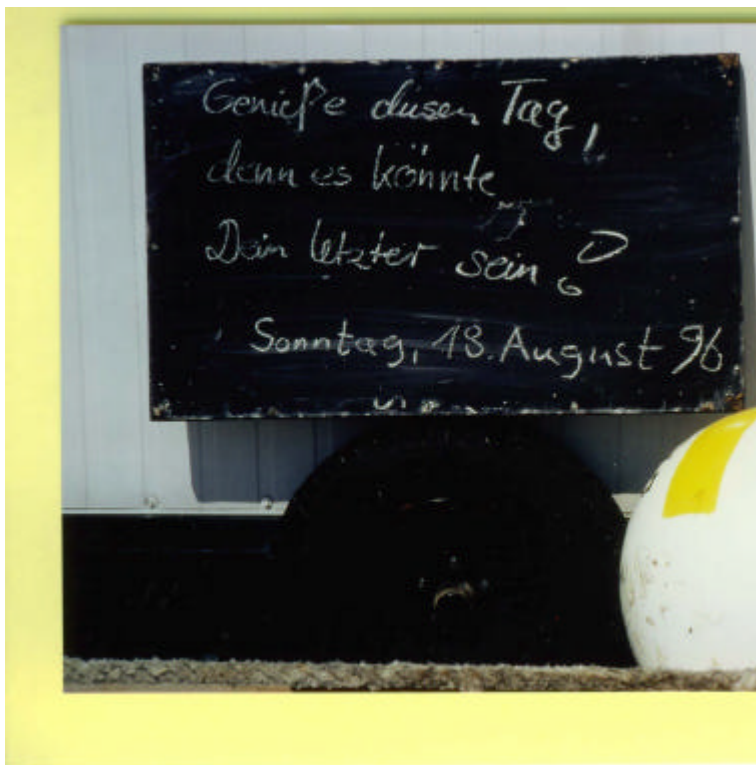 Genieße diesen Tag,
denn es könnte
Dein letzter sein!
Sonntag, 18. August 96